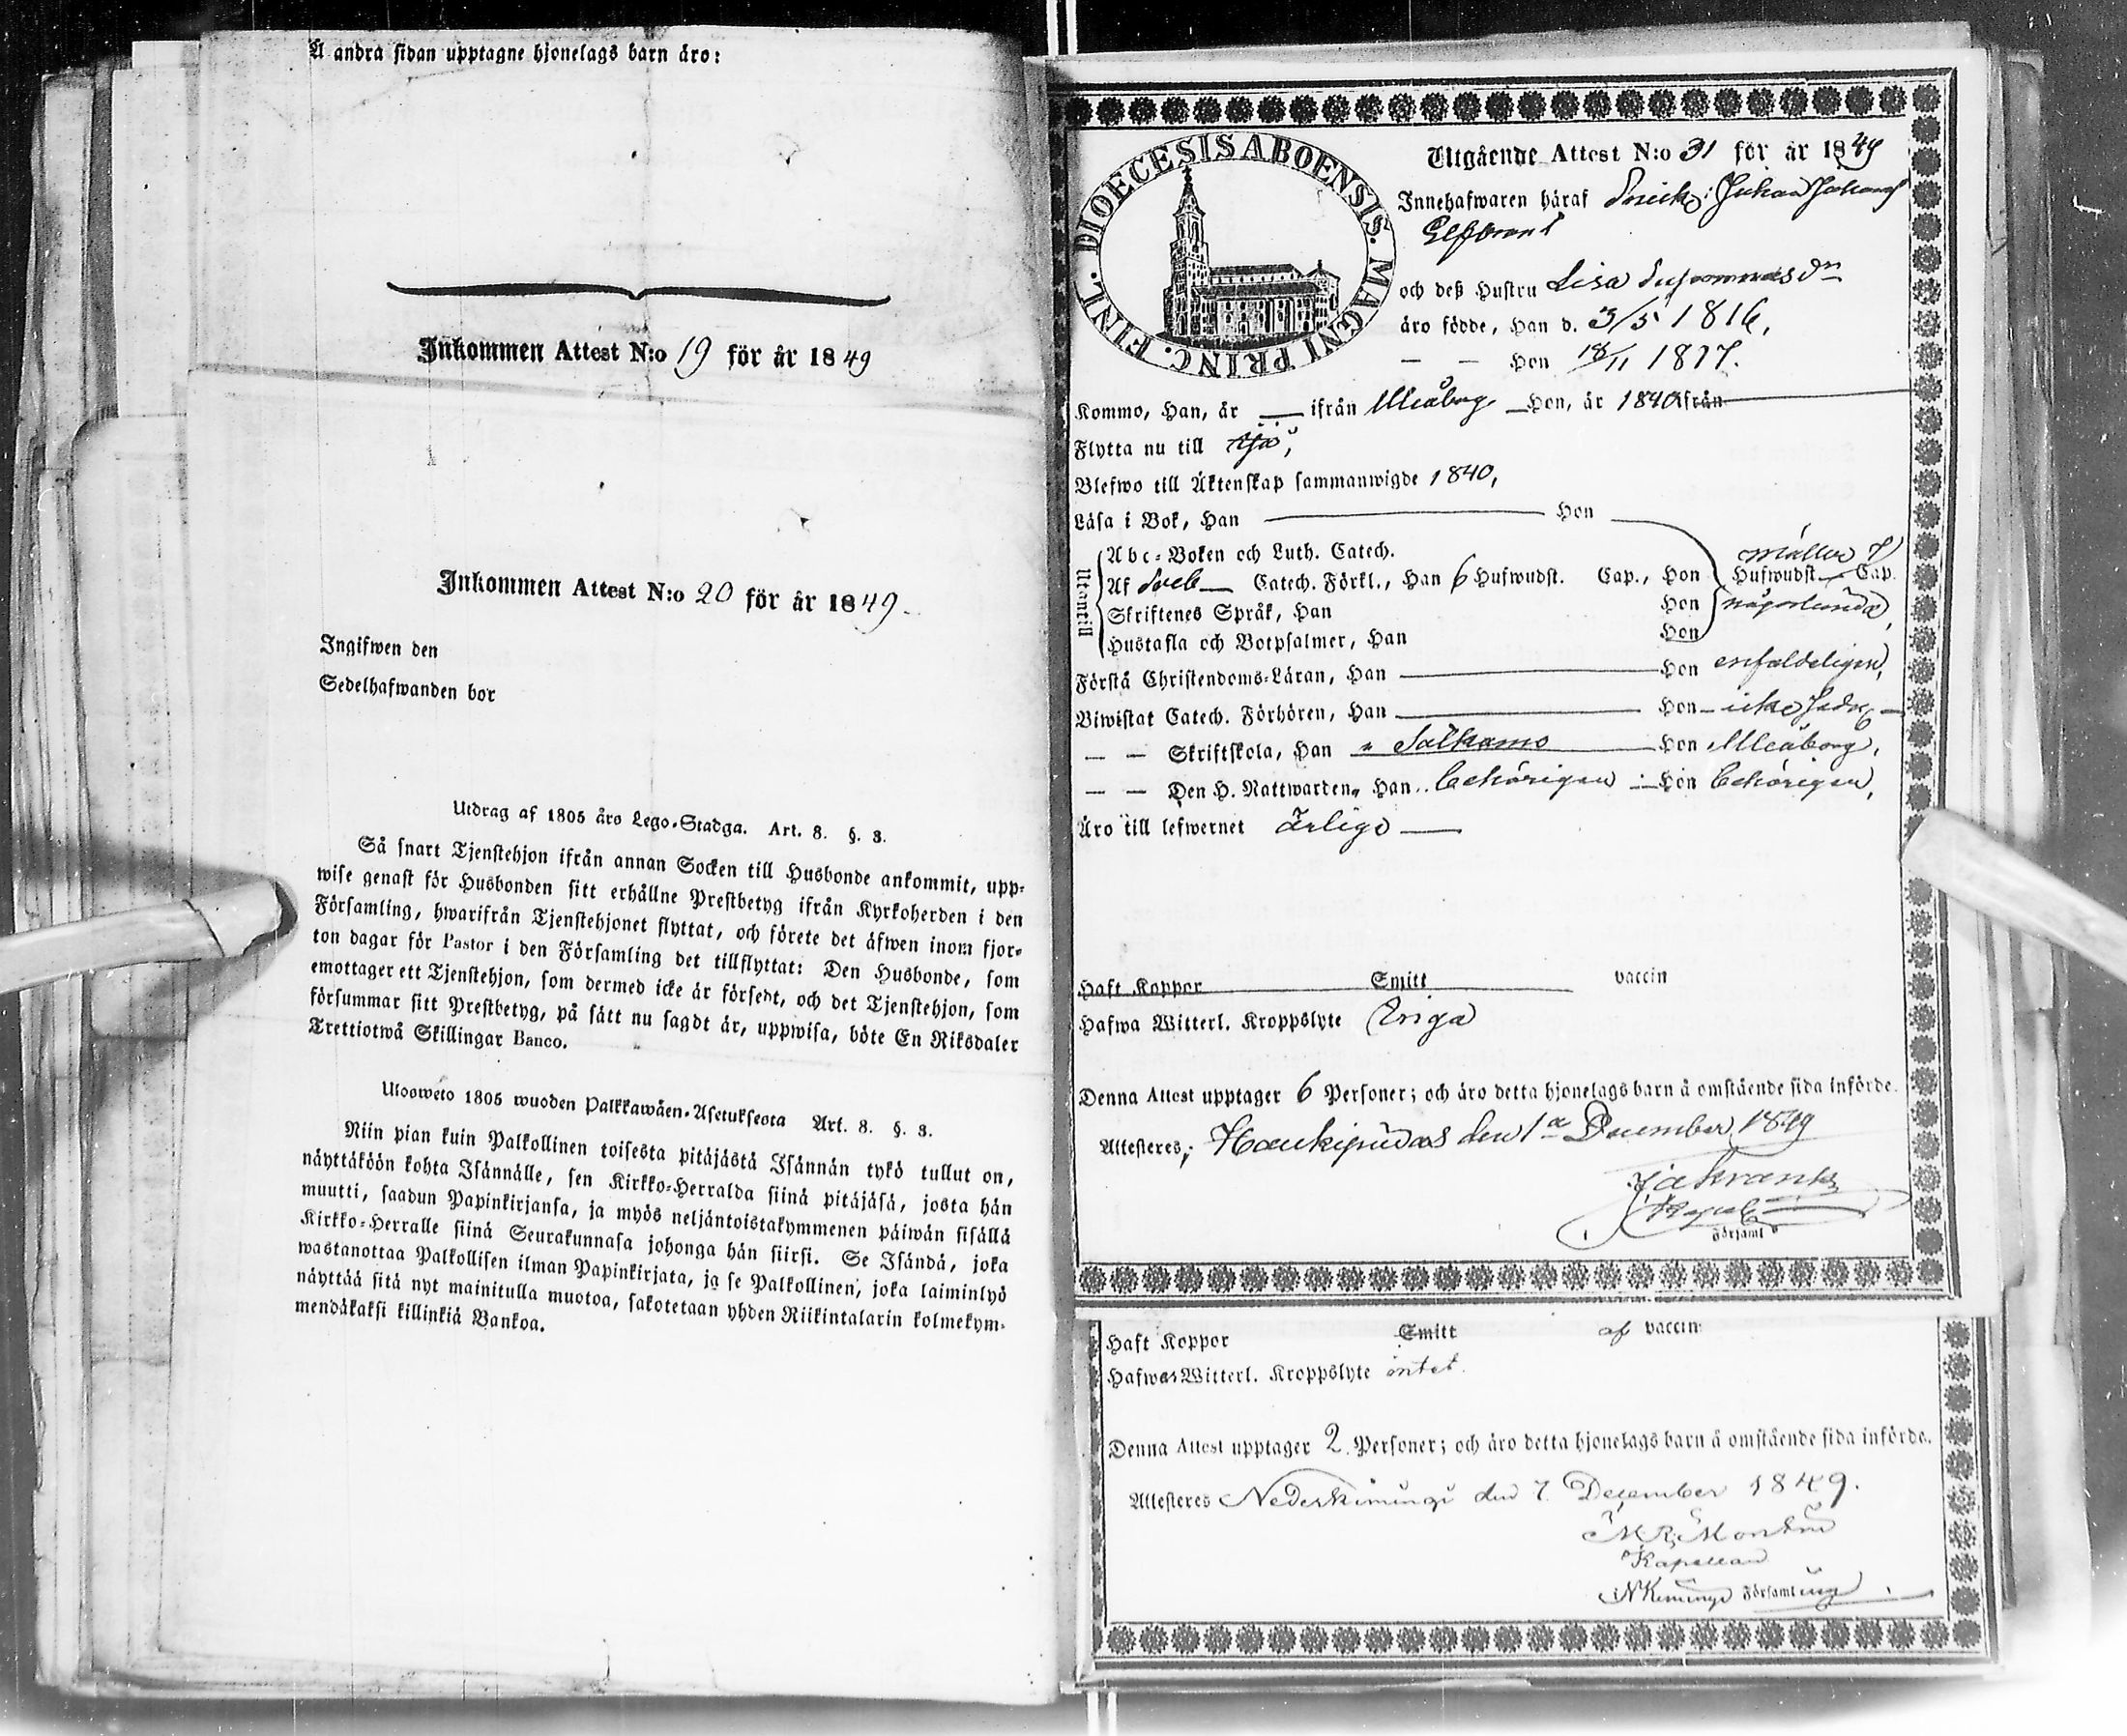 Å andra sidan upptagne hjonelags barn äro:
Inkommen Attest N:o 19 för år 1849
Inkommen Attest N:o 20 för år 1849.
Ingifwen den
Sedelhafwanden bor
Utdrag af 1805 års Lego-Stadga. Art. 8. §. 3.
Så snart Tjenstehjon ifrån annan Socken till Husbonde ankommit, upp-
wise genast för Husbonden sitt erhållne Prestbetyg ifrån Kyrkoherden i den
Församling, hwarifrån Tjenstehjonet flyttat, och förete det äfwen inom fjor-
ton dagar för Pastor i den Församling det tillflyttat: Den Husbonde, som
emottager ett Tjenstehjon, som dermed icke är försedt, och det Tjenstehjon, som
försummar sitt Prestbetyg, på sätt nu sagdt är, uppwisa, böte En Riksdaler
Trettiotwå Skillingar Banco.
Ulosweto 1805 wuoden Palkkawäen-Asetuksesta Art. 8. §. 3.
Niin pian kuin Palkollinen toisesta pitäjästä Isännän tykö tullut on,
näyttäköön kohta Isännälle, sen Kirkko-Herralda siinä pitäjäsä, josta hän
muutti, saadun Papinkirjansa, ja myös neljäntoistakymmenen päiwän sisällä
Kirkko-Herralle siinä Seurakunnasa johonga hän siirsi. Se Isändä, joka
wastanottaa Palkollisen ilman Papinkirjata, ja se Palkollinen, joka laiminlyö
näyttää sitä nyt mainitulla muotoa, sakotetaan yhden Riikintalarin kolmekym-
mendäkaksi killinkiä Bankoa.
FINL. DIOECESIS ABOENSIS. MAGNI PRINC.
Utgående Attest N:o 31 för år 1849
Innehafwaren häraf Johan
och deß Hustru Lisa
äro födde, Han d. 3/5 1816,
— — Hon 18/11 1817.
Kommo, Han, år — ifrån Uleåborg Hon, år 1840 ifrån
Flytta nu till Ijo,
Blefwo till Äktenskap sammanwigde 1840,
Läsa i Bok, Han Hon
Utantill
Abc-Boken och Luth. Catech.
Af Catech. Förkl., Han 6 Hufwudst. Cap., Hon Hufwudst. Cap.
Skriftenes Språk, Han Hon någorlunda,
Hustafla och Botpsalmer, Han Hon
Förstå Christendoms-Läran, Han Hon enfaldeligen,
Biwistat Catech. Förhören, Han Hon icke
— — Skriftskola, Han Hon Uleåborg,
— — Den H. Nattwarden, Han behörigen Hon behörigen,
Äro till lefwernet ärlige
Haft Koppor Smitt vaccin
Hafwa Witterl. Kroppslyte Inga
Denna Attest upptager 6 Personer; och äro detta hjonelags barn å omstående sida införde.
Attesteres, Haukipudas den 1a December 1849
Församl
Haft Koppor Smitt af vaccin
Hafwa Witterl. Kroppslyte intet.
Denna Attest upptager 2 Personer; och äro detta hjonelags barn å omstående sida införde.
Attesteres Nederkimingi den 7 December 1849.
Kapellan
N Kimingi Församling